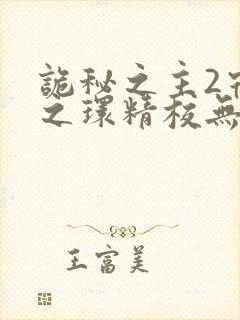 詭秘之主2宿
之環精校無
王富美